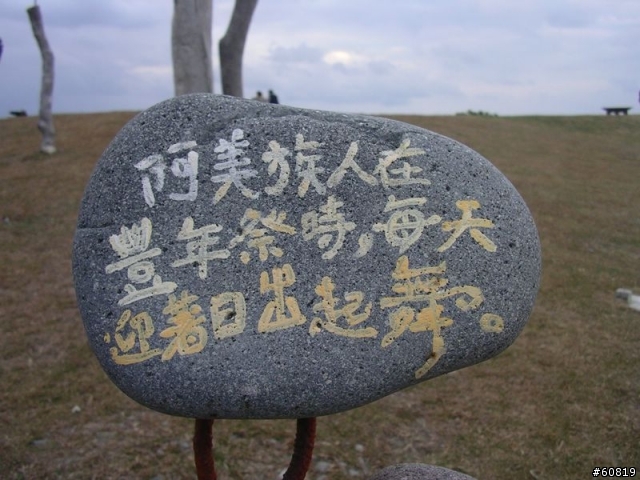 阿美族人在
豐年祭時,每天
迎著日出起舞。
#60819